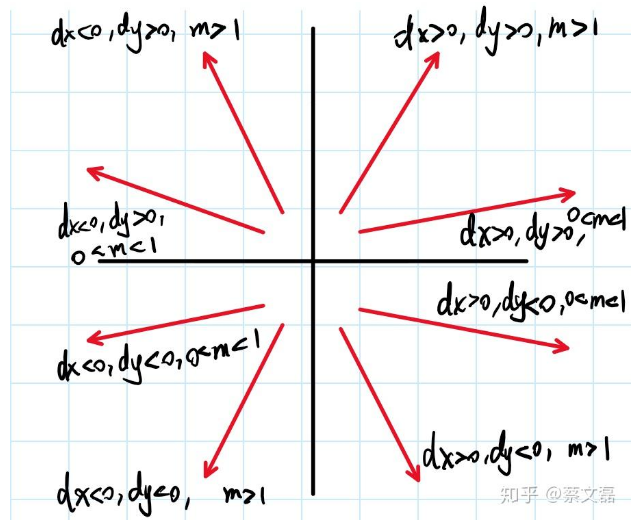 dx<0,dy>0, m>1
dx>0, dy>0, m>1
dx<0,dy>0,
0<m<1
dx>0, dy>0, 0<m<1
dx>0,dy<0,0<m<1
dx<0,dy<0,0<m<1
dx>0,dy<0, m>1
dx<0,dy<0, m>1
知乎 @蔡文磊